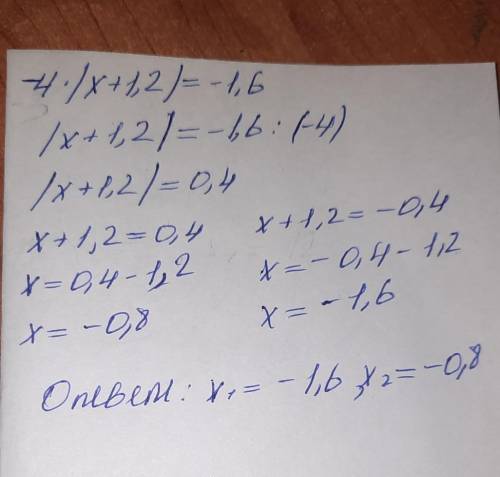 -4·|x+1,2|=-1,6
|x+1,2|=-1,6:(-4)
|x+1,2|=0,4
x+1,2=0,4 x+1,2=-0,4
x=0,4-1,2 x=-0,4-1,2
x=-0,8 x=-1,6
Ответ: x₁=-1,6, x₂=-0,8